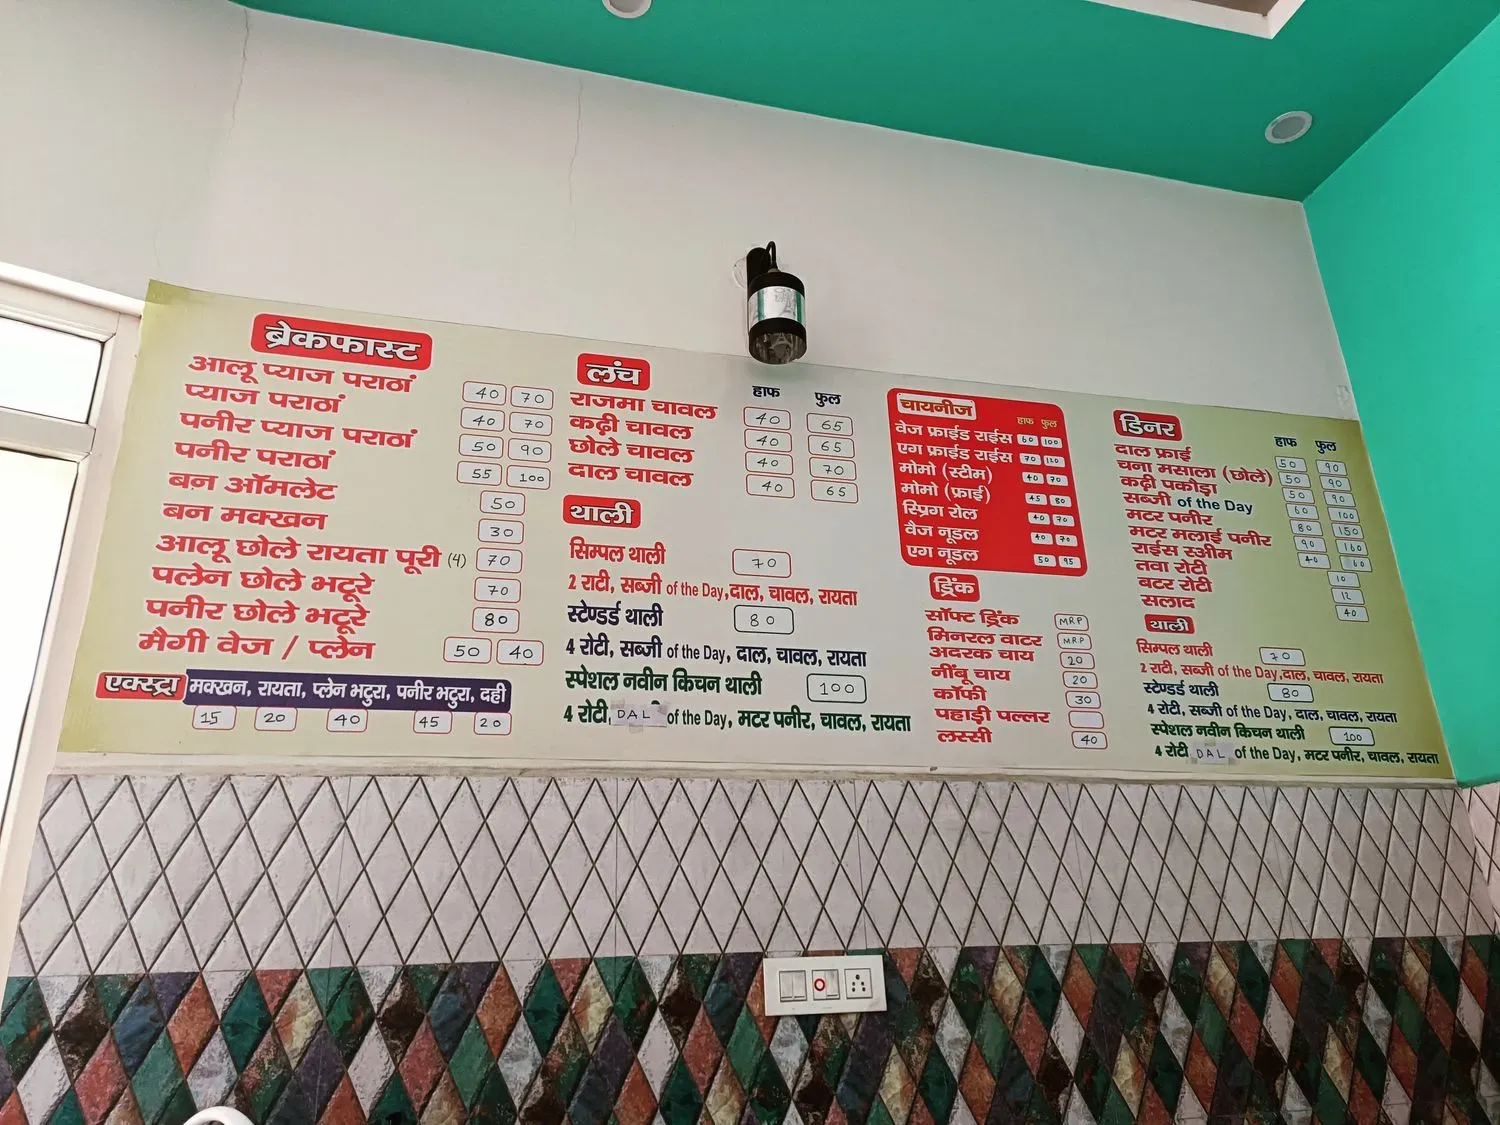 ब्रेकफास्ट
आलू प्याज पराठां 40 70
प्याज पराठां 40 70
पनीर प्याज पराठां 50 90
पनीर पराठां 55 100
बन ऑमलेट 50
बन मक्खन 30
आलू छोले रायता पूरी (4) 70
पलेन छोले भटूरे 70
पनीर छोले भटूरे 80
मैगी वेज / प्लेन 50 40
एक्स्ट्रा मक्खन, रायता, प्लेन भटुरा, पनीर भटुरा, दही
15 20 40 45 20
लंच हाफ फुल
राजमा चावल 40 65
कढ़ी चावल 40 65
छोले चावल 40 70
दाल चावल 40 65
थाली
सिम्पल थाली 70
2 राटी, सब्जी of the Day,दाल, चावल, रायता
स्टेण्डर्ड थाली 80
4 रोटी, सब्जी of the Day, दाल, चावल, रायता
स्पेशल नवीन किचन थाली 100
4 रोटी, DAL of the Day, मटर पनीर, चावल, रायता
चायनीज हाफ फुल
वेज फ्राईड राईस 60 100
एग फ्राईड राईस 70 120
मोमो (स्टीम) 40 70
मोमो (फ्राई) 45 80
स्प्रिग रोल 40 70
वेज नूडल 40 70
एग नूडल 50 95
ड्रिंक
सॉफ्ट ड्रिंक MRP
मिनरल वाटर MRP
अदरक चाय 20
नींबू चाय 20
कॉफी 30
पहाड़ी पल्लर
लस्सी 40
डिनर हाफ फुल
दाल फ्राई 50 90
चना मसाला (छोले) 50 90
कढ़ी पकोड़ा 50 90
सब्जी of the Day 60 100
मटर पनीर 80 150
मटर मलाई पनीर 90 160
राईस स्अीम 40 60
तवा रोटी 10
बटर रोटी 12
सलाद 40
थाली
सिम्पल थाली 70
2 राटी, सब्जी of the Day,दाल, चावल, रायता
स्टेण्डर्ड थाली 80
4 रोटी, सब्जी of the Day, दाल, चावल, रायता
स्पेशल नवीन किचन थाली 100
4 रोटी DAL of the Day, मटर पनीर, चावल, रायता